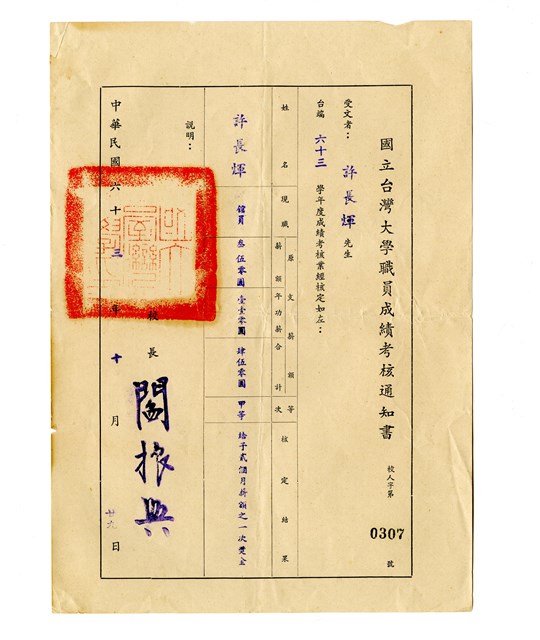 國立台灣大學職員成績考核通知書
校人字第 0307 號
受文者：許長煇 先生
台端 六十三 學年度成績考核業經核定如左：
姓名
現職
原支薪額
薪額
年功薪
合計
等次
核定結果
許長煇
館員
叁伍零圓
壹零零圓
肆伍零圓
甲等
給予貳個月薪額之一次獎金
說明：
校長 閻振興
中華民國六十三年十月廿九日